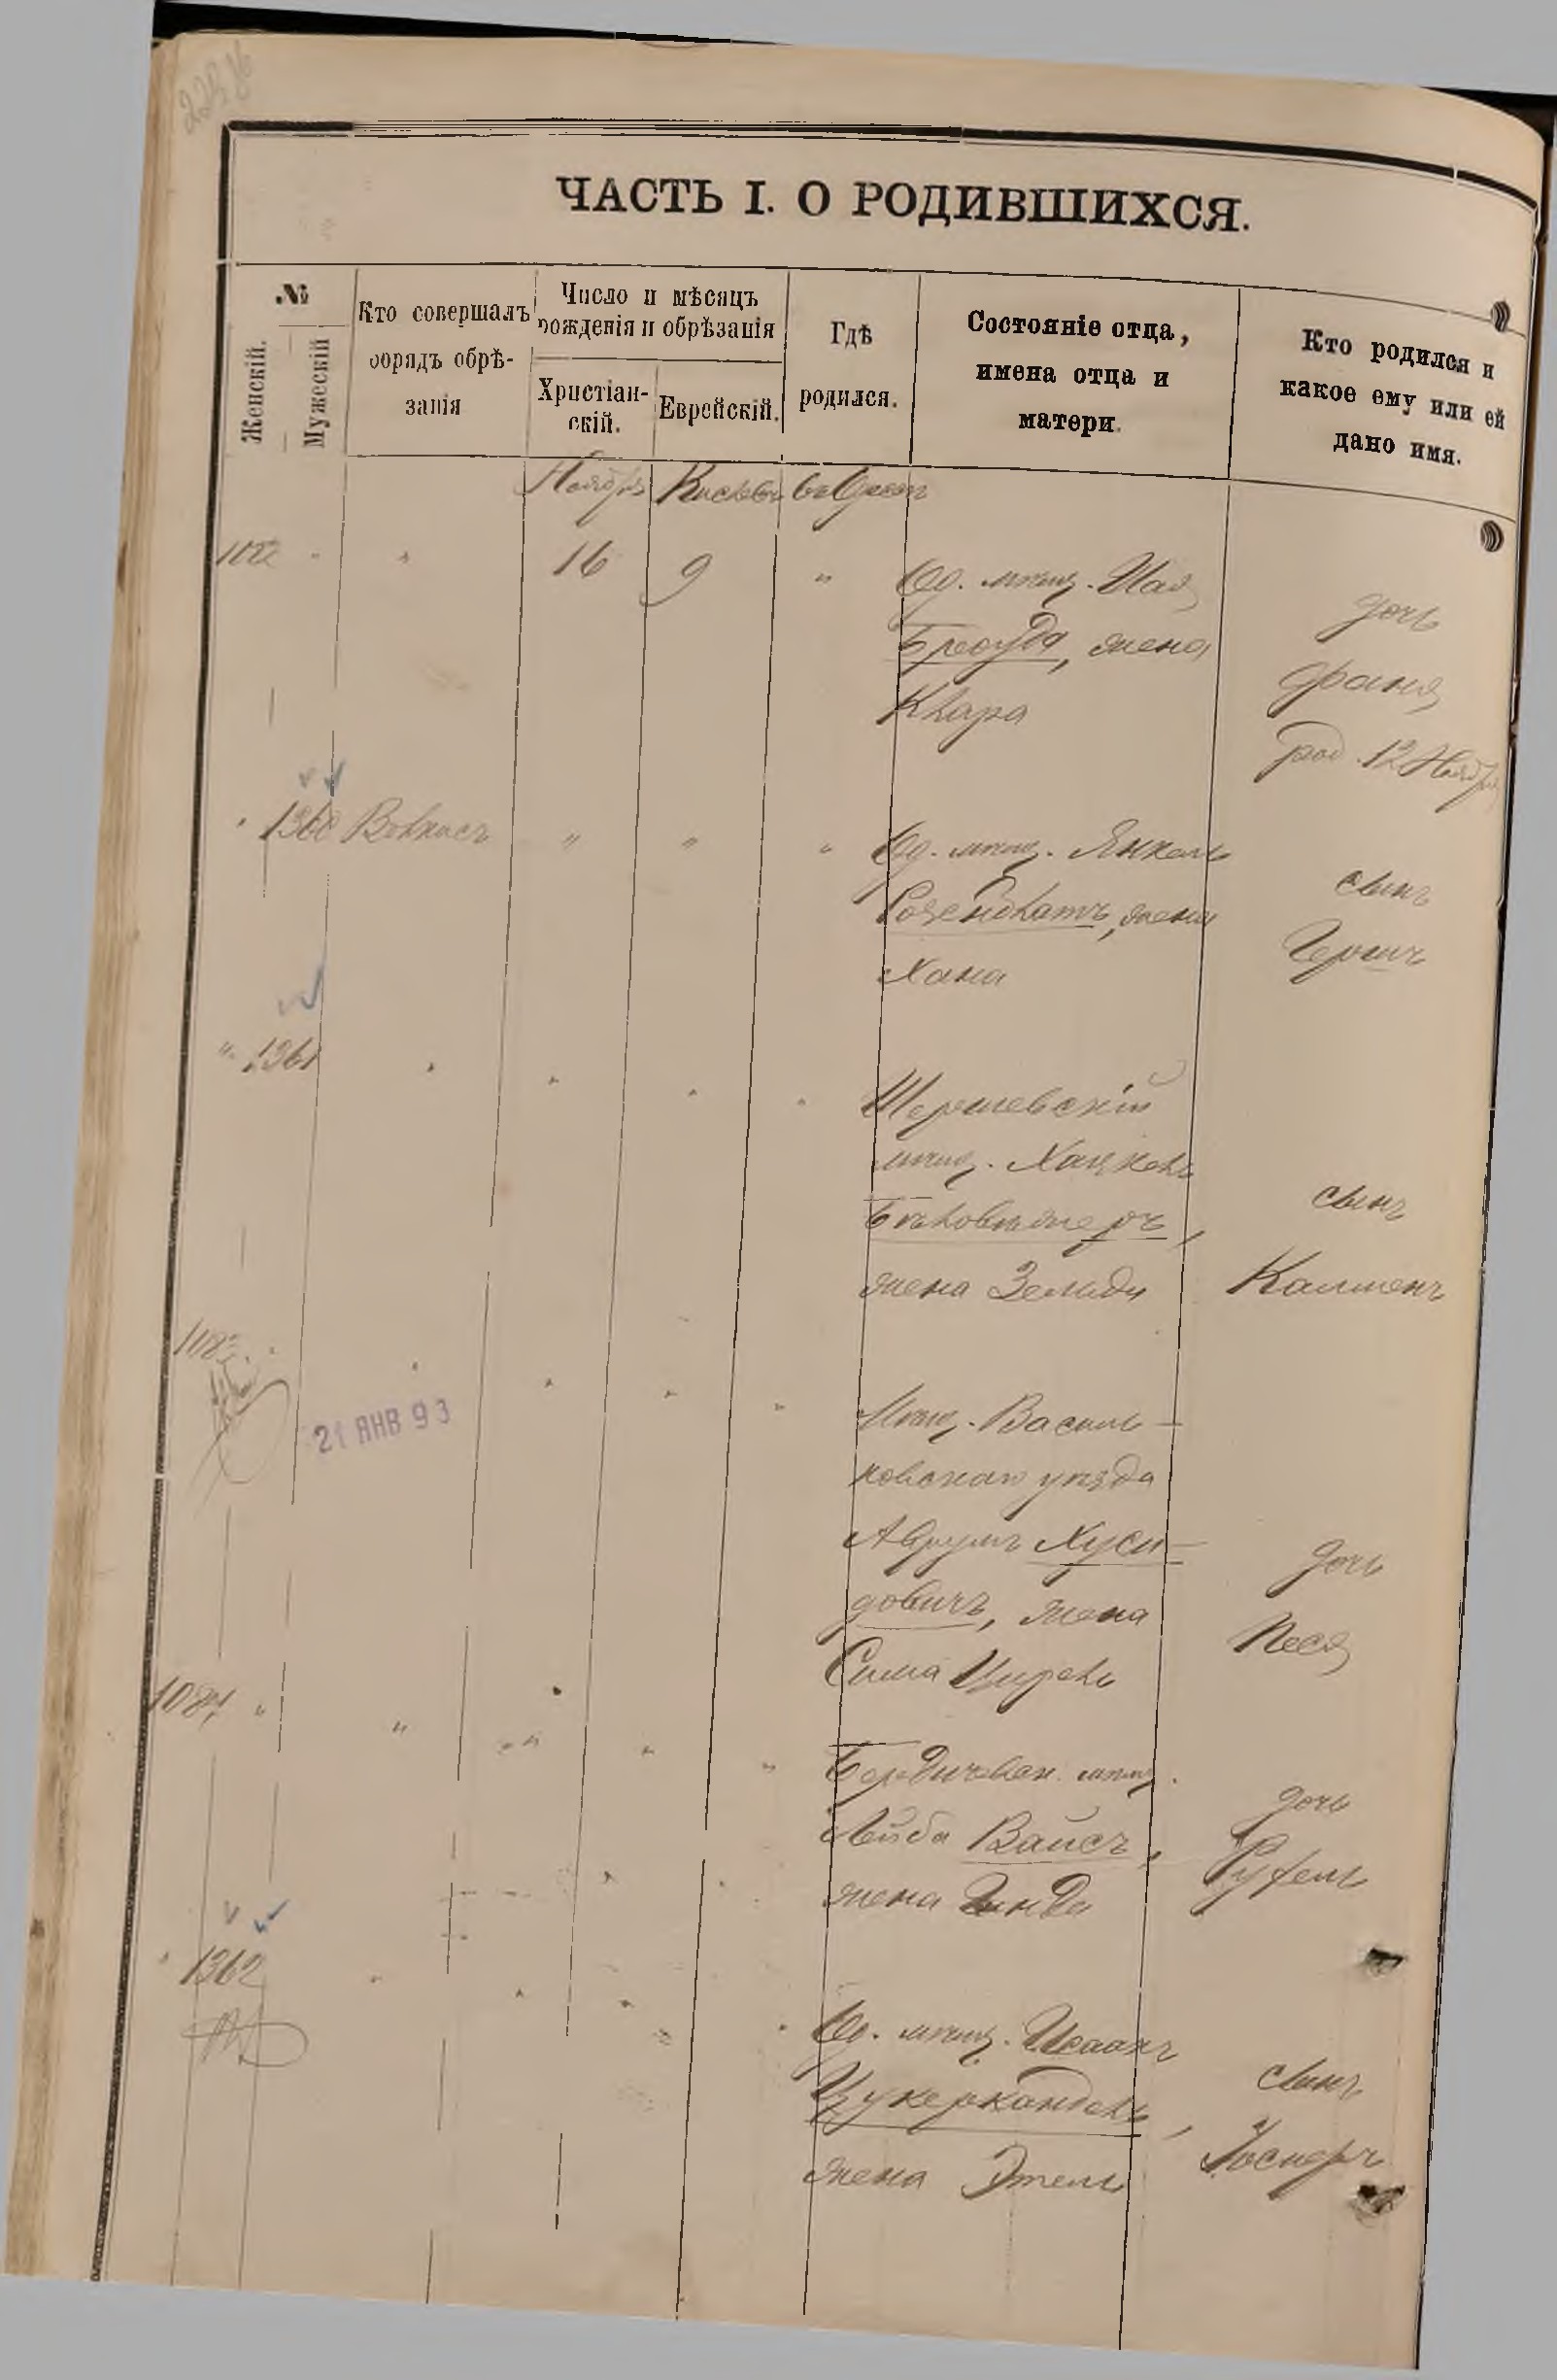 ЧАСТЬ I. О РОДИВШИХСЯ.
№
Женскій.
Мужескій
Кто совершалъ
обрядъ обрѣ-
занія
Число и мѣсяцъ
рожденія и обрѣзанія
Христіан-
скій.
Еврейскій.
Гдѣ
родился.
Состояніе отца,
имена отца и
матери.
Кто родился и
какое ему или ей
дано имя.
Ноябрь Кислевъ въ Одессѣ
1082 " " 16 9 "
Од. мѣщ.
Броуда, жена
Клара
дочь
Фаня
род. 12 Ноября
" 1360 " " "
Од. мѣщ. Янкель
Розенблатъ, жена
Хана
сынъ
Гершъ
" 1361 " " " "
Шерешевскій
мѣщ. Хацкель
жена Зельда
сынъ
Калменъ
1083 " " " " "
21 ЯНВ 93
Мѣщ. Василь-
ковскаго уѣзда
Аврумъ Хуси-
довичъ, жена
Сима Цирель
дочь
Песя
1084 " " " " "
Бердичевск. мѣщ.
Лейба Вайсъ,
жена
дочь
Рухель
" 1362 " " " "
Од. мѣщ. Исаакъ
Цукеркандель,
жена Этель
сынъ
Іосифъ